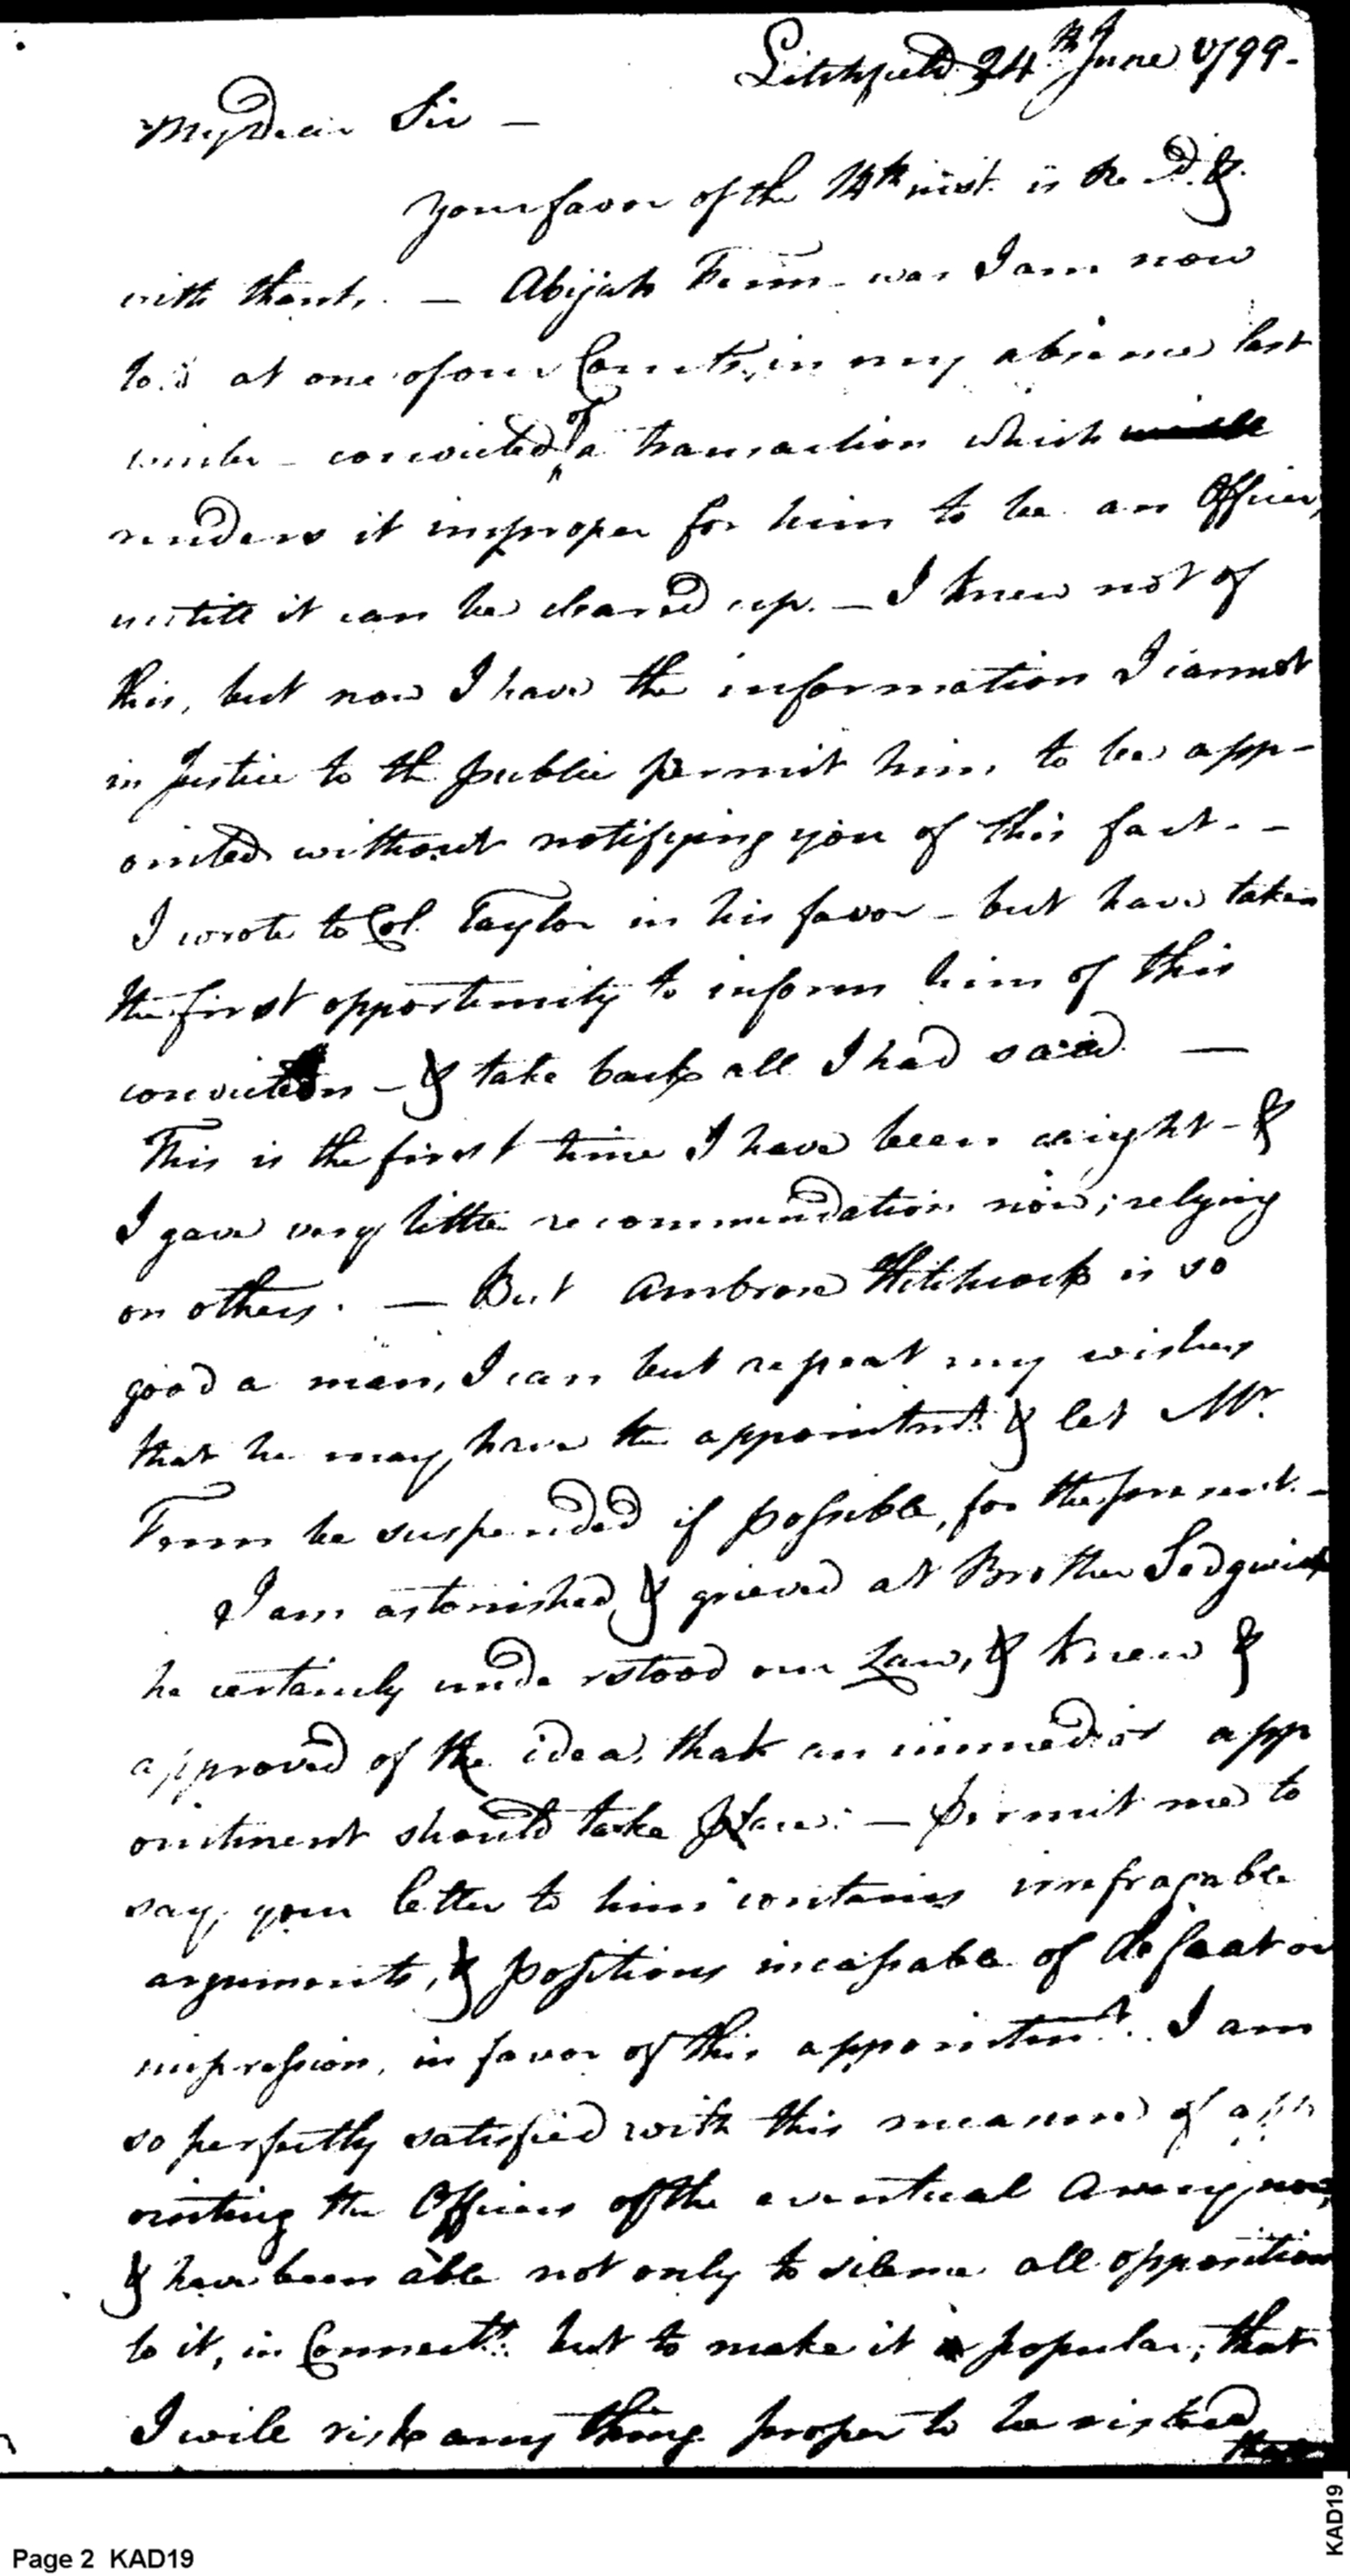 Litchfield 24th June 1799-
My Dear Sir —
Your favor of the 14th inst. is Re.d. &
with thanks. — Abijah Fenn - was I am now
told at one of our Courts, in my absence last
winter - convicted of a transaction which
renders it improper for him to be an Officer,
untill it can be cleared up. — I knew not of
this, but now I have the information I cannot
in Justice to the public permit him to be app-
ointed without notifying you of this fact. -
I wrote to Col. Taylor in his favor - but have taken
the first opportunity to inform him of this
conviction - & take back all I had said. —
This is the first time I have been caught - &
I gave very little recommendation now; relying
on others. — But Ambrose Hitchcock is so
good a man, I can but repeat my wishes
that he may have the appointmt. & let Mr.
Fenn be suspended if possible, for the present. -
I am astonished, & grieved at Brother Sedgwick
he certainly understood our Law, & knew &
approved of the idea, that an immediat app
ointment should take place. — Permit me to
say, your letter to him contains irrefragable
arguments, & positions incapable of defeat or
impression, in favor of this appointmt. I am
so perfectly satisfied with this measure of app
ointing the Officers of the eventual Army now,
& have been able not only to silence all opposition
to it, in Connectt. but to make it popular; that
I will risk any thing proper to be risked
Page 2 KAD19
KAD19